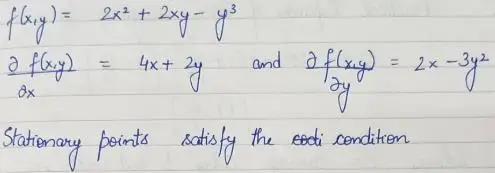 f(x,y) = 2x² + 2xy - y³
∂ f(x,y)/∂x = 4x + 2y and ∂ f(x,y)/∂y = 2x - 3y²
Stationary points satisfy the condition